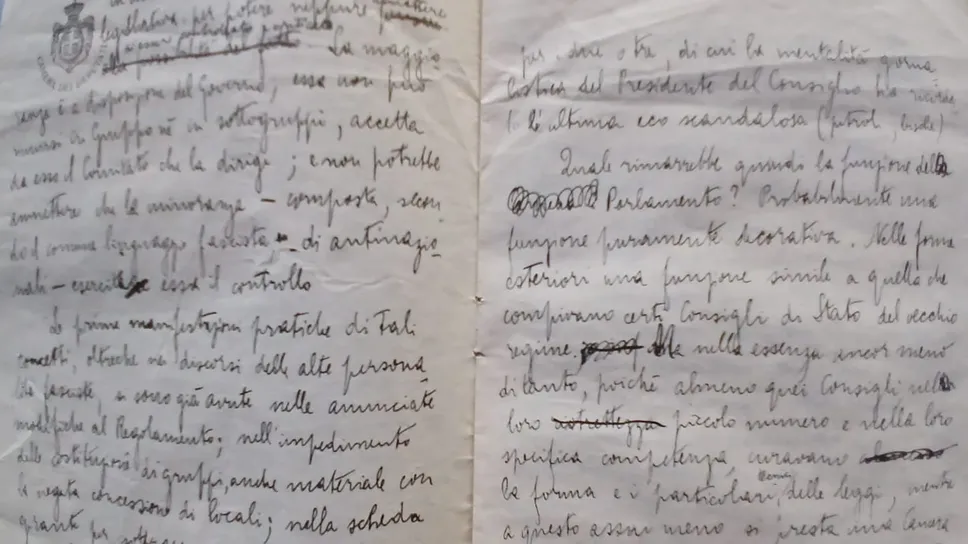 legislatura per potere neppure
La maggio
ranza è a disposizione del Governo, essa non può
riunirsi in Gruppo nè in sottogruppi, accetta
da esso il Comitato che la dirige; e non potrebbe
ammettere che la minoranza – composta, secon
do il comune linguaggio fascista – di antinazio-
nali – esercitasse essa il controllo
Le prime manifestazioni pratiche di tali
concetti, oltreche nei discorsi delle alte persona-
lità fasciste, si sono già avute nelle annunciate
modifiche al Regolamento; nell'impedimento
della costituzione di gruppi, anche materiale con
la negata concessione di locali; nella scheda
grante per
per due o tre, di cui la mentalità giorna
listica del Presidente del Consiglio ha
l'ultima eco scandalosa (petroli, bische)
Quale rimarrebbe quindi la funzione del
Parlamento? Probabilmente una
funzione puramente decorativa. Nelle forme
esteriori una funzione simile a quella che
compivano certi Consigli di Stato del vecchio
regime, ma nella essenza ancor meno
di tanto, poichè almeno quei Consigli nella
loro ristrettezza piccolo numero e nella loro
specifica competenza, curavano
la forma e i particolari tecnici delle leggi, mentre
a questo assai meno si presta una Camera